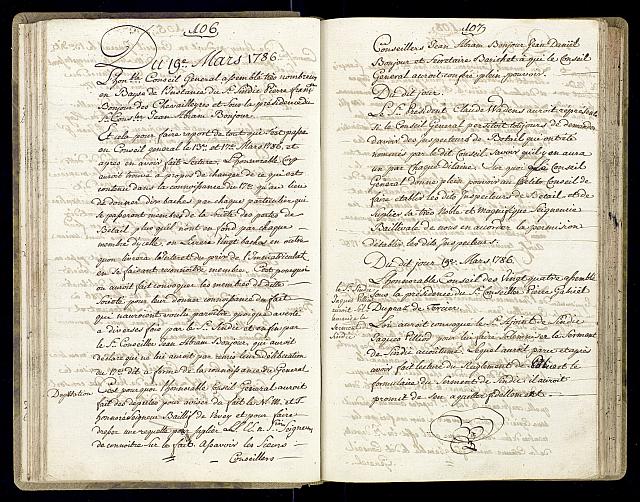 106
Du 19e. Mars 1786.
Conseil General assemblé tres nombreux
en Bayse de l'Instance du Sr. Sindic Pierre
Bonjour des Chevailleyres et sous la présidence du
Sr. Conser. Jean Abram Bonjour.
Et cela pour faire raport de tout qui s'est passé
en Conseil general le 13e. et 17e. Mars 1786. et
apres en avoir fait Lecture. L'honorable Corp
auroit trouvé a propos de changer de ce qui est
contenu dans la connoissance du 17e. qu'au lieu
de donner dix baches par chaque particulier qui
se passeront membres de la
Betail plus qu'il n'ont en fond par chaque
membre d'ycelle, on Livera Vingt baches en outre
quon livrera l'interet du prix de
en se faisant membre. C'est pourquoi
on auroit fait convoquer les membres de dite
Societé pour leur donner connoissance du fait
qui n'auroient voulu paroitre quoique avertis
a diverses fois par le Sr. Sindic et enfin par
le Sr. Conseiller Jean Abram Bonjour, qui auroit
declaré que ne lui auroit pas remis leur deliberation
du 17e. dit a forme de la connoissance du General
Deputation
C'est pourquoi l'honorable Conseil General auroit
fait des deputés pour aviser du fait le N. M. et T.
honoré Seigneur Baillif de Vevey et pour faire
dreper une requette pour
de connoitre sur le fait. Assavoir les Sieurs
Conseillers
107
Conseillers Jean Abram Bonjour Jean Daniel
Bonjour et Secretaire a qui le Conseil
General auroit conféré plein pouvoir.
Du dit jour.
Le Sr. President Claude Wadens auroit représenté
si le Conseil General persistoit toujours de demander
d'avoir des Inspecteurs de Betail qui ont été
nommés par le dit Conseil Savoir qu'il y en aura
un par Chaque Dizaine. Sur quoi Le Conseil
General donne plein pouvoir au petit Conseil de
faire etablir les dits Inspecteurs de Betail, et de
suplier sa très Noble et Magnifique Seigneurie
Baillivale de nous en accorder la permission
d'établir les dits Inspecteurs.
Du dit jour 19e. Mars 1786.
L'honorable Conseil des Vingt quatre assemblé
Sous la présidence du Sr. Conseiller Pierre Gabriel
Duprat de Torcier.
L'on auroit convoqué le Sr. Ajoint de Sindic
Jaques Pilliod pour lui faire solemniser le Serment
de Sindic accoutumé. Lequel auroit paru et après
avoir fait lecture du Reglement de et le
formulaire du Serment de Sindic il auroit
promit de s'en aquitter fidellement.